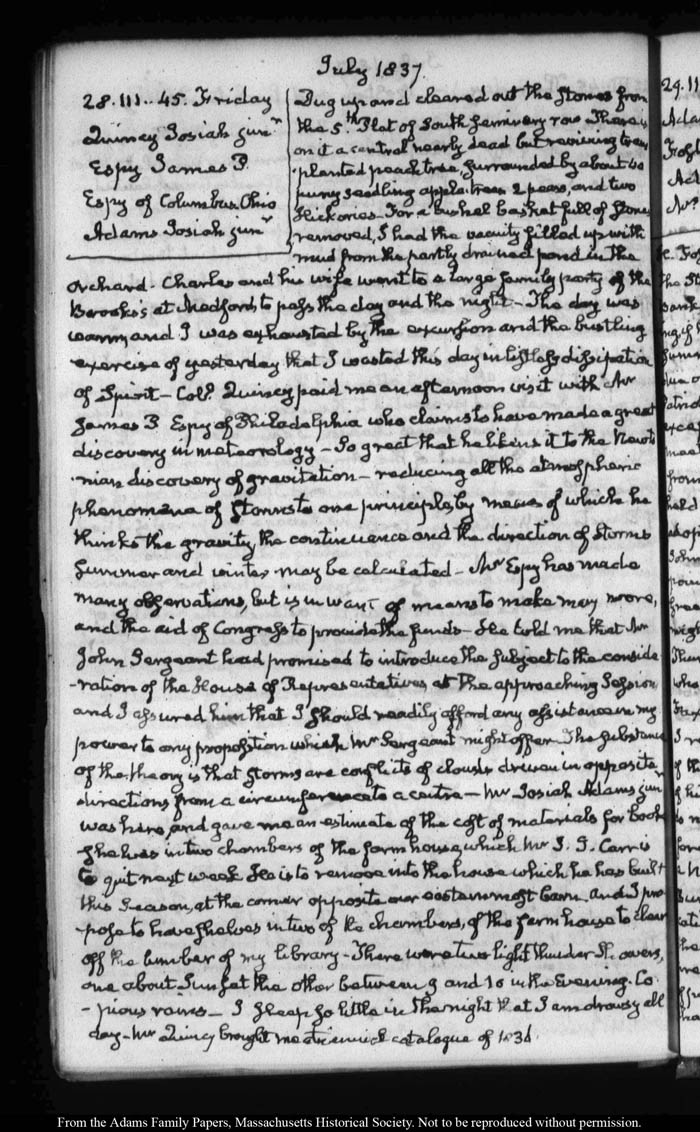 July 1837.
28. III.. 45. Friday
Quincy Josiah jun.r
Espy James P.
Espy of Columbus. Ohio
Adams Josiah jun.r
Dug up and cleared out the stones from
the 5.th Plat of South Seminary row There is
on it a central nearly dead but reviving tran
-planted peach tree, surrounded by about 40
puny seedling apple trees 2 pears, and two
Hickories. For a bushel basket full of stones
removed, I had the vacuity filled up with
mud from the partly drained pond in the
orchard. Charles and his wife went to a large family party of the
Brooks's at Medford to pass the day and the night. The day was
warm, and I was exhausted by the excursion and the bustling
exercise of yesterday that I wasted this day in listless dissipation
of Spirit — Col.l Quincy paid me an afternoon visit with Mr
James P Espy of Philadelphia who claims to have made a great
discovery in meteorology — So great that he likens it to the Newto
-nian discovery of gravitation — reducing all the atmospheric
phenomena of storms to one principle, by means of which he
thinks the gravity the continuance and the direction of storms
summer and winter may be calculated — Mr Espy has made
many observations, but is in want of means to make many more,
and the aid of Congress to provide the funds — He told me that Mr
John Sergeant had promised to introduce the subject to the conside
-ration of the House of Representatives, at the approaching Session
and I assured him that I should readily afford any assistance in my
power to any proposition which Mr Sergeant might offer. The substance
of the theory is that storms are conflicts of clouds driven in opposite
directions from a circumference to a centre — Mr Josiah Adams jun.r
was here, and gave me an estimate of the cost of materials for book
shelves in two chambers of the farm house, which Mr J. J. Carr is
to quit next week He is to remove into the house which he has built
this Season, at the corner opposite our easternmost barn and I pro
-pose to have shelves in two of the chambers, of the farm house to clear
off the lumber of my library — There were two light thunder Showers,
one about Sunset the other between 9 and 10 in the Evening. Co
-pious rains — I sleep so little in the night that I am drowsy all
day — Mr Quincy brought me a catalogue of 1836.
From the Adams Family Papers, Massachusetts Historical Society. Not to be reproduced without permission.